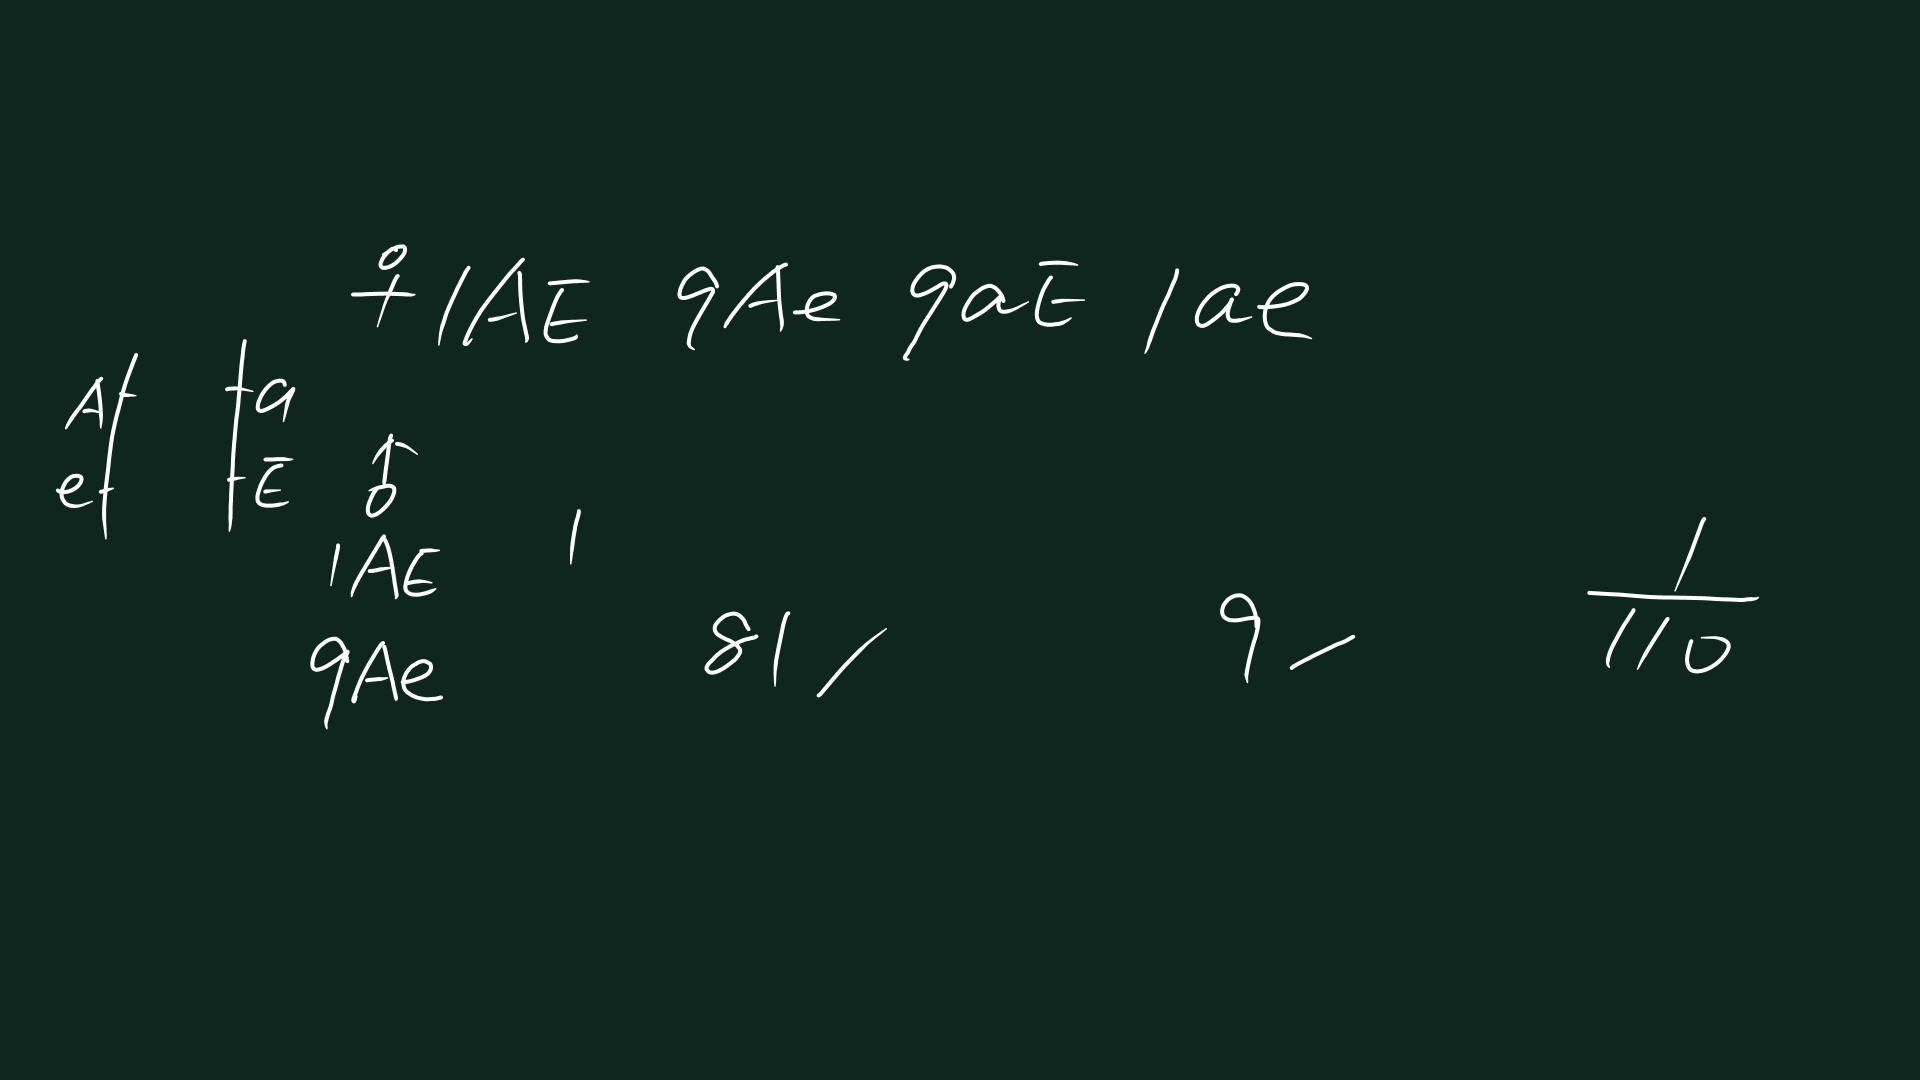 ♀ 1AE 9Ae 9aE 1ae
A a
e E ♂
1AE 1
9Ae 81 9
1/110